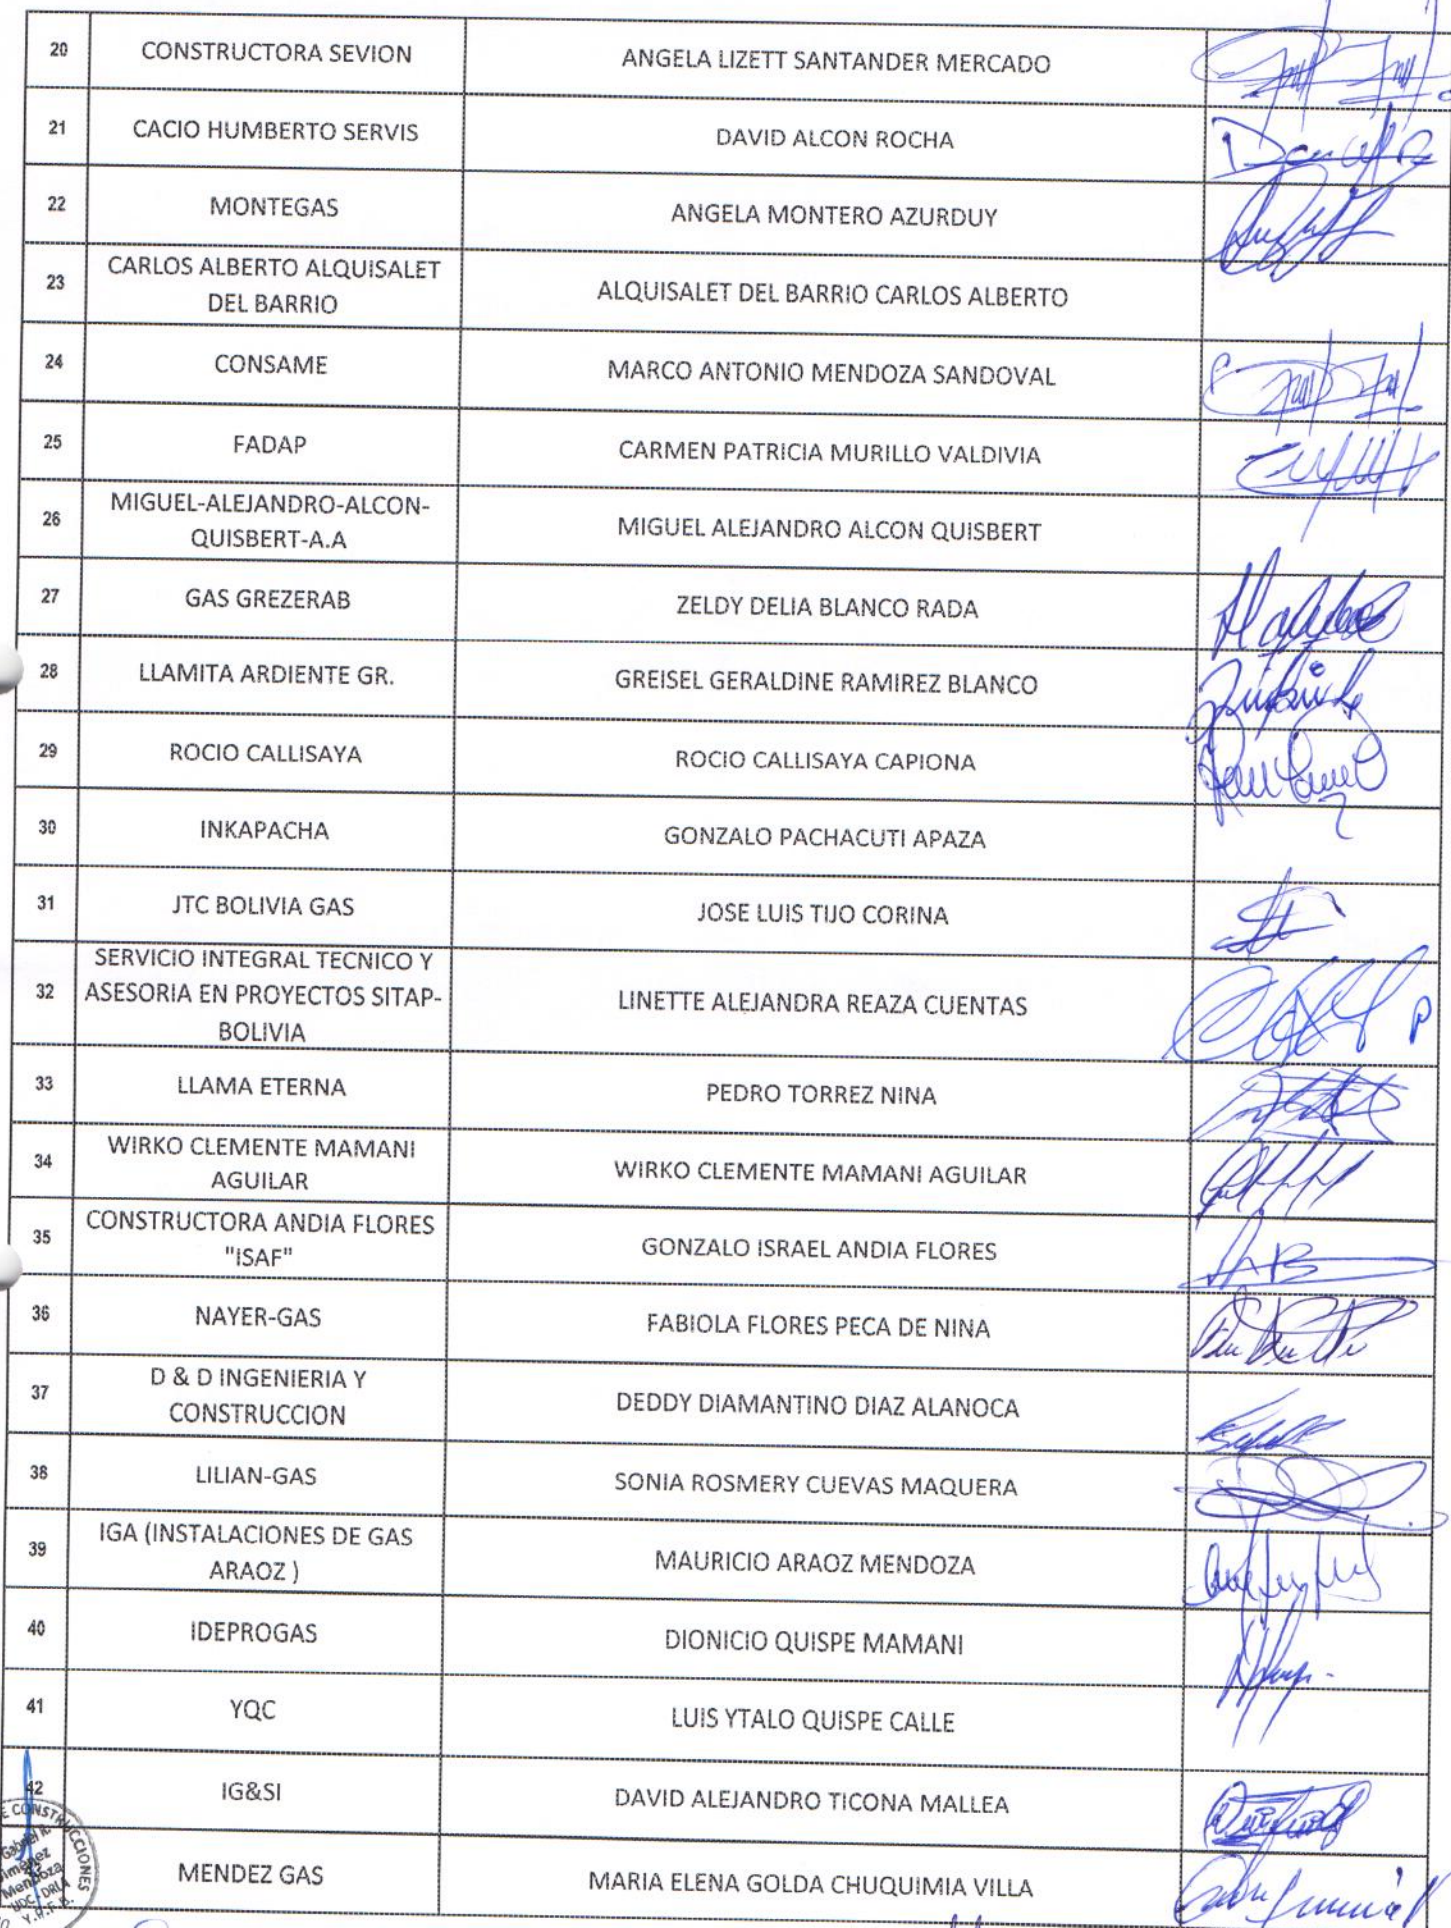 20 CONSTRUCTORA SEVION ANGELA LIZETT SANTANDER MERCADO
21 CACIO HUMBERTO SERVIS DAVID ALCON ROCHA
22 MONTEGAS ANGELA MONTERO AZURDUY
23 CARLOS ALBERTO ALQUISALET
DEL BARRIO ALQUISALET DEL BARRIO CARLOS ALBERTO
24 CONSAME MARCO ANTONIO MENDOZA SANDOVAL
25 FADAP CARMEN PATRICIA MURILLO VALDIVIA
26 MIGUEL-ALEJANDRO-ALCON-
QUISBERT-A.A MIGUEL ALEJANDRO ALCON QUISBERT
27 GAS GREZERAB ZELDY DELIA BLANCO RADA
28 LLAMITA ARDIENTE GR. GREISEL GERALDINE RAMIREZ BLANCO
29 ROCIO CALLISAYA ROCIO CALLISAYA CAPIONA
30 INKAPACHA GONZALO PACHACUTI APAZA
31 JTC BOLIVIA GAS JOSE LUIS TIJO CORINA
SERVICIO INTEGRAL TECNICO Y
32 ASESORIA EN PROYECTOS SITAP- LINETTE ALEJANDRA REAZA CUENTAS
BOLIVIA
33 LLAMA ETERNA PEDRO TORREZ NINA
34 WIRKO CLEMENTE MAMANI
AGUILAR WIRKO CLEMENTE MAMANI AGUILAR
35 CONSTRUCTORA ANDIA FLORES
"ISAF" GONZALO ISRAEL ANDIA FLORES
36 NAYER-GAS FABIOLA FLORES PECA DE NINA
37 D & D INGENIERIA Y
CONSTRUCCION DEDDY DIAMANTINO DIAZ ALANOCA
38 LILIAN-GAS SONIA ROSMERY CUEVAS MAQUERA
39 IGA (INSTALACIONES DE GAS
ARAOZ ) MAURICIO ARAOZ MENDOZA
40 IDEPROGAS DIONICIO QUISPE MAMANI
41 YQC LUIS YTALO QUISPE CALLE
42 IG&SI DAVID ALEJANDRO TICONA MALLEA
MENDEZ GAS MARIA ELENA GOLDA CHUQUIMIA VILLA
E CONSTRUCCIONES
Gabriel R.
Mendoza
UDC - DRLA
Y.P.F.B.